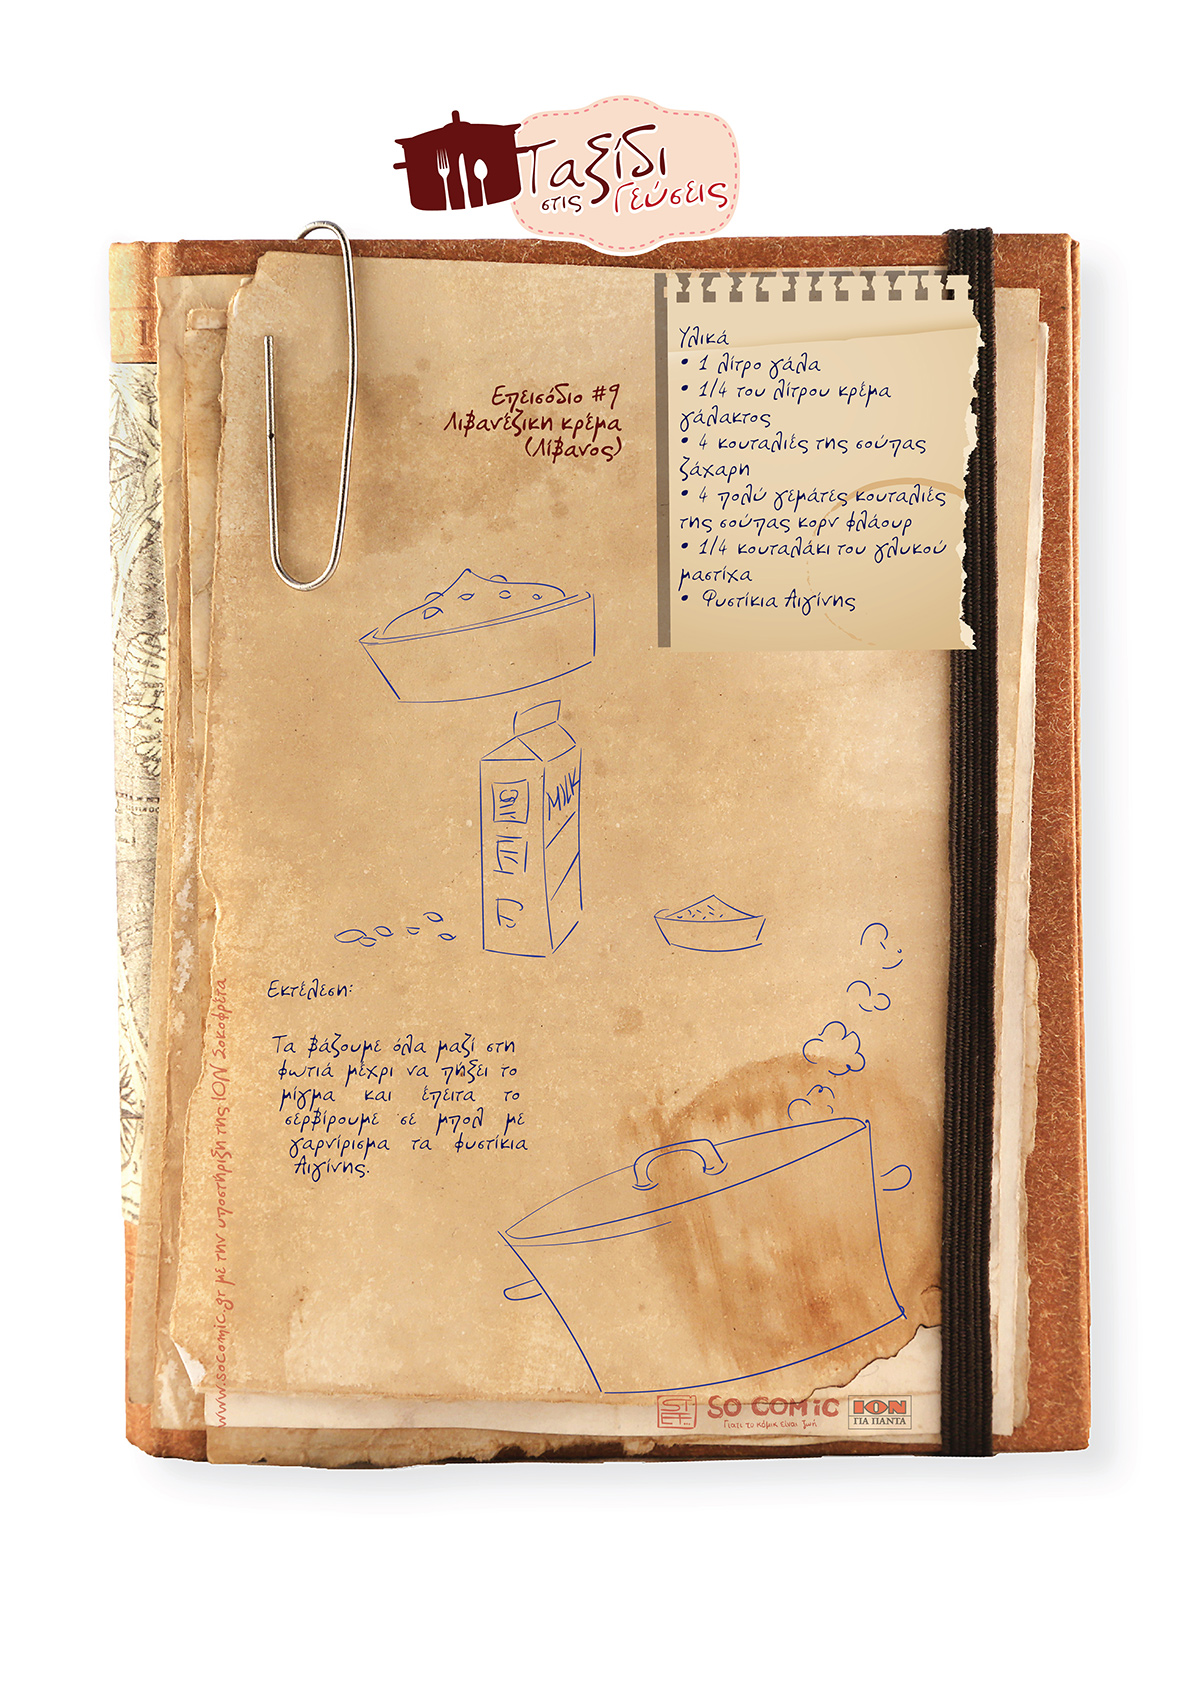 Ταξίδι
στις Γεύσεις
Επεισόδιο #9
Λιβανέζικη κρέμα
(Λίβανος)
Υλικά
• 1 λίτρο γάλα
• 1/4 του λίτρου κρέμα
γάλακτος
• 4 κουταλιές της σούπας
ζάχαρη
• 4 πολύ γεμάτες κουταλιές
της σούπας κορν φλάουρ
• 1/4 κουταλάκι του γλυκού
μαστίχα
• Φυστίκια Αιγίνης
MILK
Εκτέλεση:
Τα βάζουμε όλα μαζί στη
φωτιά μέχρι να πήξει το
μίγμα και έπειτα το
σερβίρουμε σε μπολ με
γαρνίρισμα τα φυστίκια
Αιγίνης.
www.socomic.gr με την υποστήριξη της ΙΟΝ Σοκοφρέτα
SO COMIC
Γιατί το κόμικ είναι ζωή
ΙΟΝ
ΓΙΑ ΠΑΝΤΑ